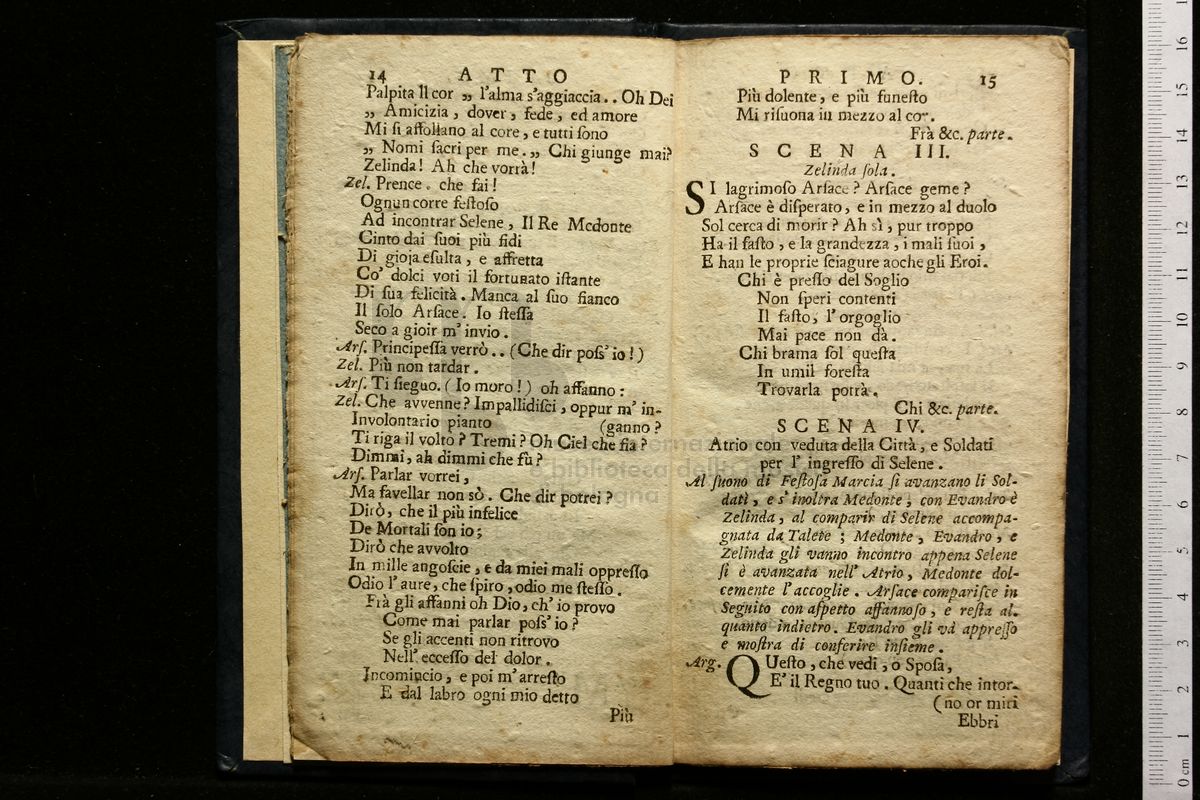 14 ATTO
Palpita Il cor „ l'alma s'aggiaccia.. Oh Dei
„ Amicizia, dover, fede, ed amore
Mi si affollano al core, e tutti sono
„ Nomi sacri per me.„ Chi giunge mai?
Zelinda! Ah che vorrà!
Zel. Prence. che fai!
Ognun corre festoso
Ad incontrar Selene, Il Re Medonte
Cinto dai suoi più fidi
Di gioja esulta, e affretta
Co' dolci voti il fortunato istante
Di sua felicità. Manca al suo fianco
Il solo Arsace. Io stessa
Seco a gioir m'invio.
Ars. Principessa verrò.. (Che dir poss'io!)
Zel. Più non tardar.
Ars. Ti sieguo. (Io moro!) oh affanno:
Zel. Che avvenne? Impallidisci, oppur m'in-
Involontario pianto (ganno?
Ti riga il volto? Tremi? Oh Ciel che fia?
Dimmi, ah dimmi che fù?
Ars. Parlar vorrei,
Ma favellar non sò. Che dir potrei?
Dirò, che il più infelice
De Mortali son io;
Dirò che avvolto
In mille angoscie, e da miei mali oppresso
Odio l'aure, che spiro, odio me stesso.
Frà gli affanni oh Dio, ch'io provo
Come mai parlar poss'io?
Se gli accenti non ritrovo
Nell'eccesso del dolor.
Incomincio, e poi m'arresto
E dal labro ogni mio detto
Più
PRIMO. 15
Più dolente, e più funesto
Mi risuona in mezzo al cor.
Frà &c. parte.
SCENA III.
Zelinda sola.
SI lagrimoso Arsace? Arsace geme?
Arsace è disperato, e in mezzo al duolo
Sol cerca di morir? Ah sì, pur troppo
Ha il fasto, e la grandezza, i mali suoi,
E han le proprie sciagure aoche gli Eroi.
Chi è presso del Soglio
Non speri contenti
Il fasto, l'orgoglio
Mai pace non dà.
Chi brama sol questa
In umil foresta
Trovarla potrà.
Chi &c. parte.
SCENA IV.
Atrio con veduta della Città, e Soldati
per l'ingresso di Selene.
Al suono di Festosa Marcia si avanzano li Sol-
dati, e s'inoltra Medonte, con Evandro è
Zelinda, al comparir di Selene accompa-
gnata da Talete; Medonte, Evandro, e
Zelinda gli vanno incontro appena Selene
si è avanzata nell'Atrio, Medonte dol-
cemente l'accoglie. Arsace comparisce in
Seguito con aspetto affannoso, e resta al-
quanto indietro. Evandro gli và appresso
e mostra di conferire insieme.
Arg. QUesto, che vedi, o Sposa,
E' il Regno tuo. Quanti che intor-
(no or miri
Ebbri